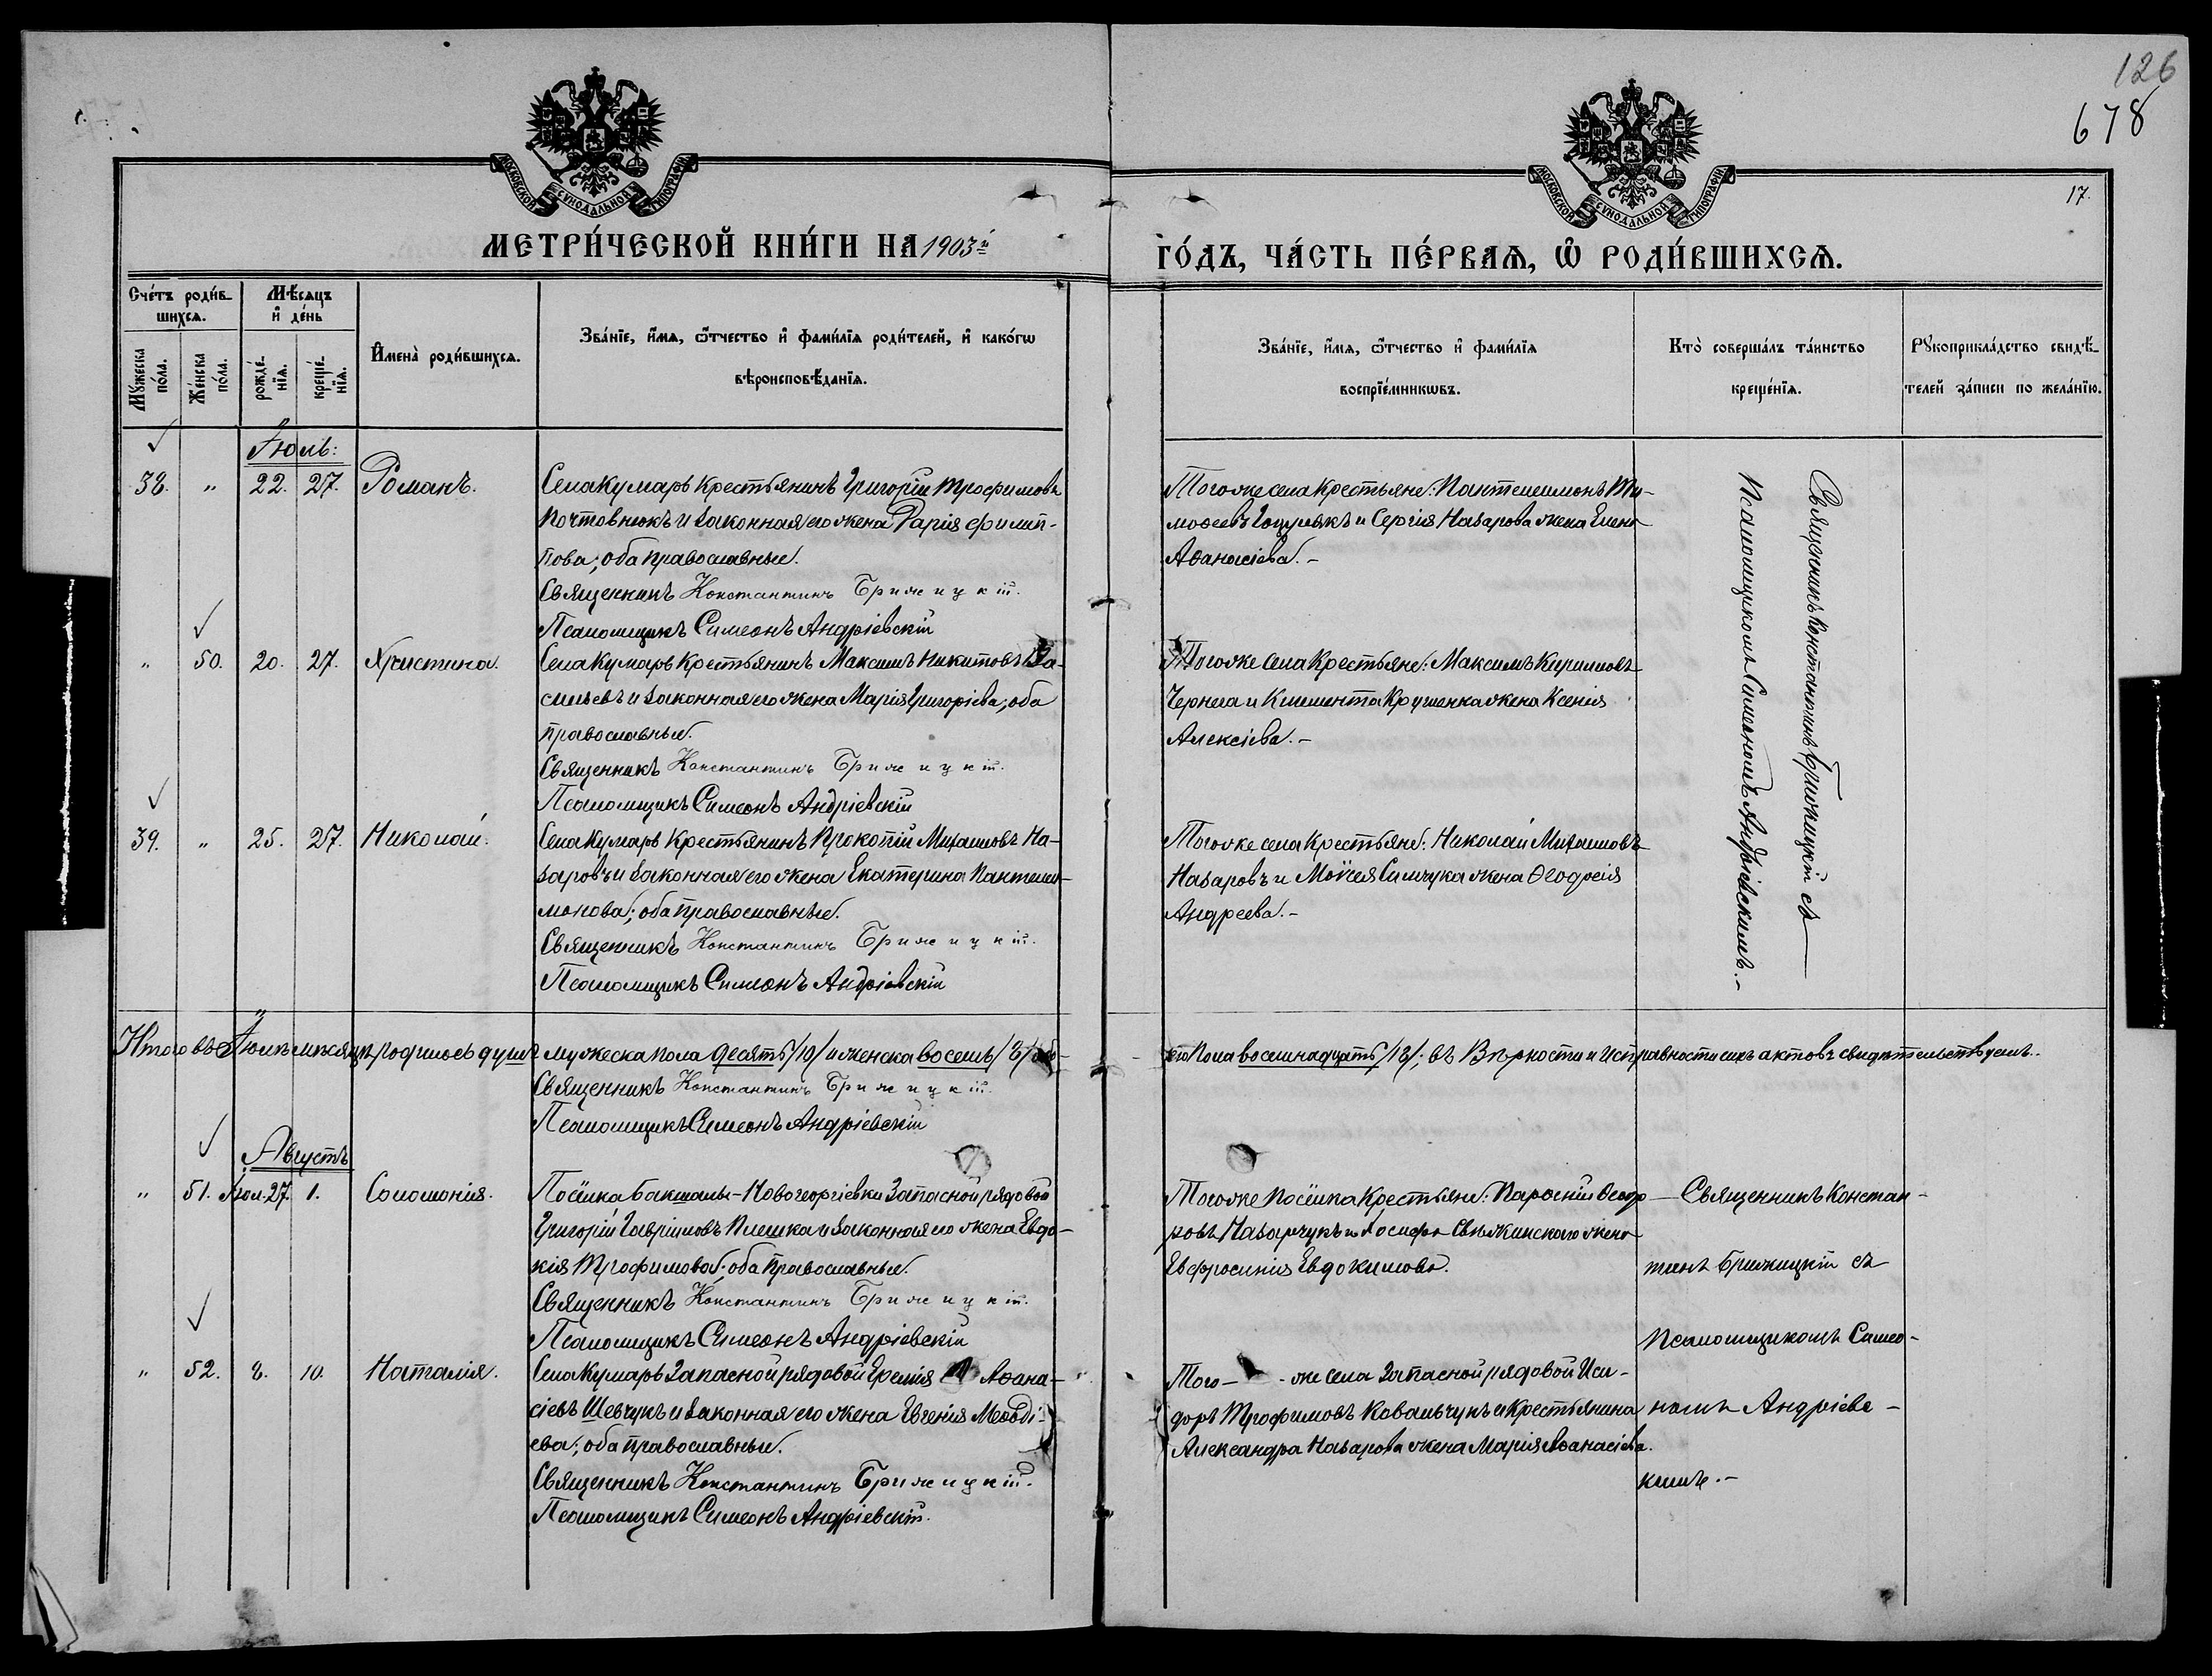 126
678
17.
МОСКОВСКОЙ СѴНОДАЛЬНОЙ ТИПОГРАФІИ
МОСКОВСКОЙ СѴНОДАЛЬНОЙ ТИПОГРАФІИ
МЕТРИ́ЧЕСКОЙ КНИ́ГИ НА 1903й
ГО́ДЪ, ЧА́СТЬ ПЕ́РВАѦ, Ѽ РОДИ́ВШИХСѦ.
Сче́тъ роди́в-
шихсѧ.
Мѣ́сѧцъ
и҆ де́нь
Мꙋ́жеска по́ла.
Же́нска по́ла.
рожде́-
нїѧ.
креще́-
нїѧ.
И҆мена̀ роди́вшихсѧ.
Зва́нїе, и҆́мѧ, ѻ҆́тчество и҆ фами́лїѧ роди́телей, и҆ како́гѡ
вѣроисповѣ́данїѧ.
Зва́нїе, и҆́мѧ, ѻ҆́тчество и҆ фами́лїѧ
воспрїе́мникѡвъ.
Кто̀ соверша́лъ та́инство
креще́нїѧ.
Рꙋкоприкла́дство свидѣ́-
телей за́писи по жела́нїю.
Іюль:
38. " 22. 27. Романъ.
Села Кумаръ крестьянинъ Григорій Трофимовъ
Почтовнюкъ и законная его жена Дарія Филип-
пова; оба православные.
Священникъ Константинъ Брижицкій.
Псаломщикъ Симеонъ Андріевскій
Тогоже села крестьяне: Пантелеимонъ Ти-
моѳеевъ и Сергія Назарова жена Елена
Аѳанасіева.-
" 50. 20. 27. Христина.
Села Кумаръ крестьянинъ Максимъ Никитовъ Ва-
сильевъ и законная его жена Марія Григоріева; оба
православные.
Священникъ Константинъ Брижицкій.
Псаломщикъ Симеонъ Андріевскій
Тогоже села крестьяне: Максимъ Кирилловъ
Чернега и Климента Крушенка жена Ксенія
Алексіева.-
39. " 25. 27. Николай.
Села Кумаръ крестьянинъ Прокопій Михаиловъ На-
заровъ и законная его жена Екатерина Пантелеи-
монова; оба православные.
Священникъ Константинъ Брижицкій.
Псаломщикъ Симеонъ Андріевскій
Тогоже села крестьяне: Николай Михаиловъ
Назаровъ и Моѵсея Симчука жена Ѳеодосія
Андреева.-
Священникъ Константинъ Брижицкій съ
Псаломщикомъ Симеономъ Андріевскимъ.-
Итого въ Іюлѣ мѣсяцѣ родилось душъ мужеска пола десять /10/ и женска восемь /8/ обо-
его пола восемнадцать /18/; въ вѣрности и исправности сихъ актовъ свидѣтельствуемъ.
Священникъ Константинъ Брижицкій.
Псаломщикъ Симеонъ Андріевскій
Августъ
" 51. Іюл. 27. 1. Соломонія.
Посёлка Бакшалы-Новогеоргіевки запасной рядовой
Григорій Гавриловъ Плешка и законная его жена Евдо-
кія Трофимова; оба православные.
Священникъ Константинъ Брижицкій.
Псаломщикъ Симеонъ Андріевскій
Тогоже посёлка крестьяне: Парѳеній Ѳеодо-
ровъ Назарчукъ и Іосифа Свѣжинскаго жена
Евфросинія Евдокимова.
Священникъ Констан-
тинъ Брижицкій съ
Псаломщикомъ Симео-
номъ Андріевс-
кимъ.-
" 52. 8. 10. Наталія.
Села Кумаръ запасной рядовой Еремія Аѳана-
сіевъ Шевчукъ и законная его жена Евгенія Меѳоді-
ева; оба православные.
Священникъ Константинъ Брижицкій.
Псаломщикъ Симеонъ Андріевскій.
Того- -же села запасной рядовой Иси-
доръ Трофимовъ Ковальчукъ и крестьянина
Александра Назарова жена Марія Аѳанасіева.